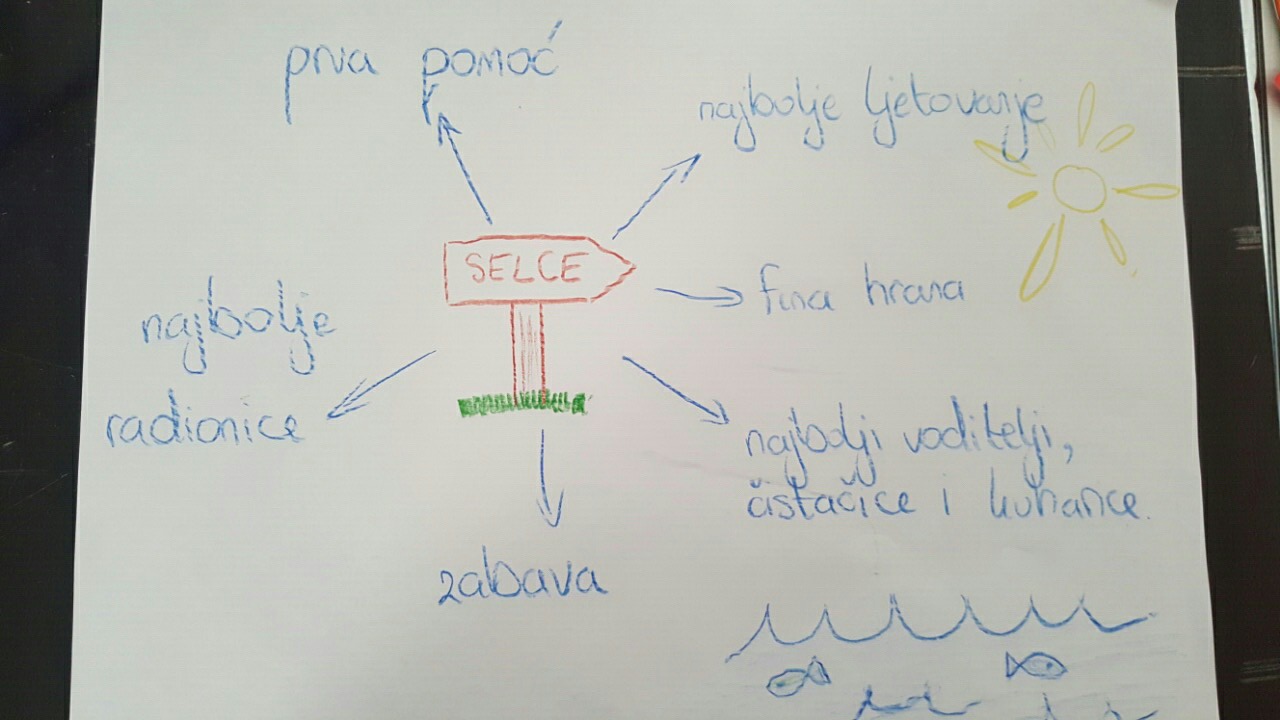 prva pomoć
najbolje ljetovanje
SELCE
fina hrana
najbolje
radionice
najbolji voditelji,
čistačice i kuharice.
zabava